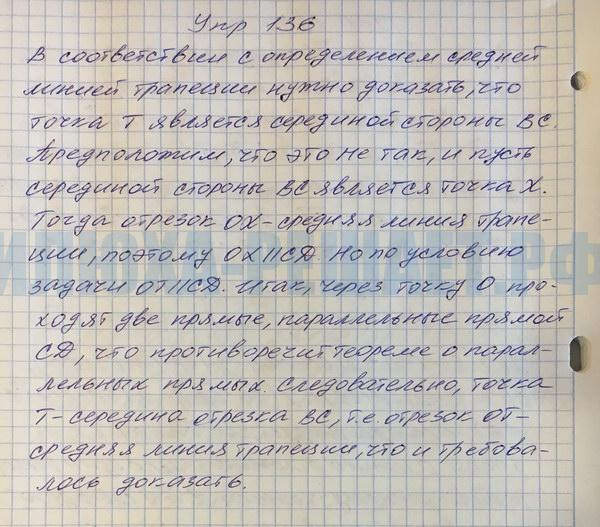 Упр 136
В соответствии с определением средней
линией трапеции нужно доказать, что
точка Т является серединой стороны BC.
Предположим, что это не так, и пусть
серединой стороны BC является точка X.
Тогда отрезок OX - средняя линия трапе-
ции, поэтому OX||CD. Но по условию
задачи OT||CD. Итак, через точку O про-
ходят две прямые, параллельные прямой
CD, что противоречит теореме о парал-
лельных прямых. Следовательно, точка
T - середина отрезка BC, т.е. отрезок OT -
средняя линия трапеции, что и требова-
лось доказать.